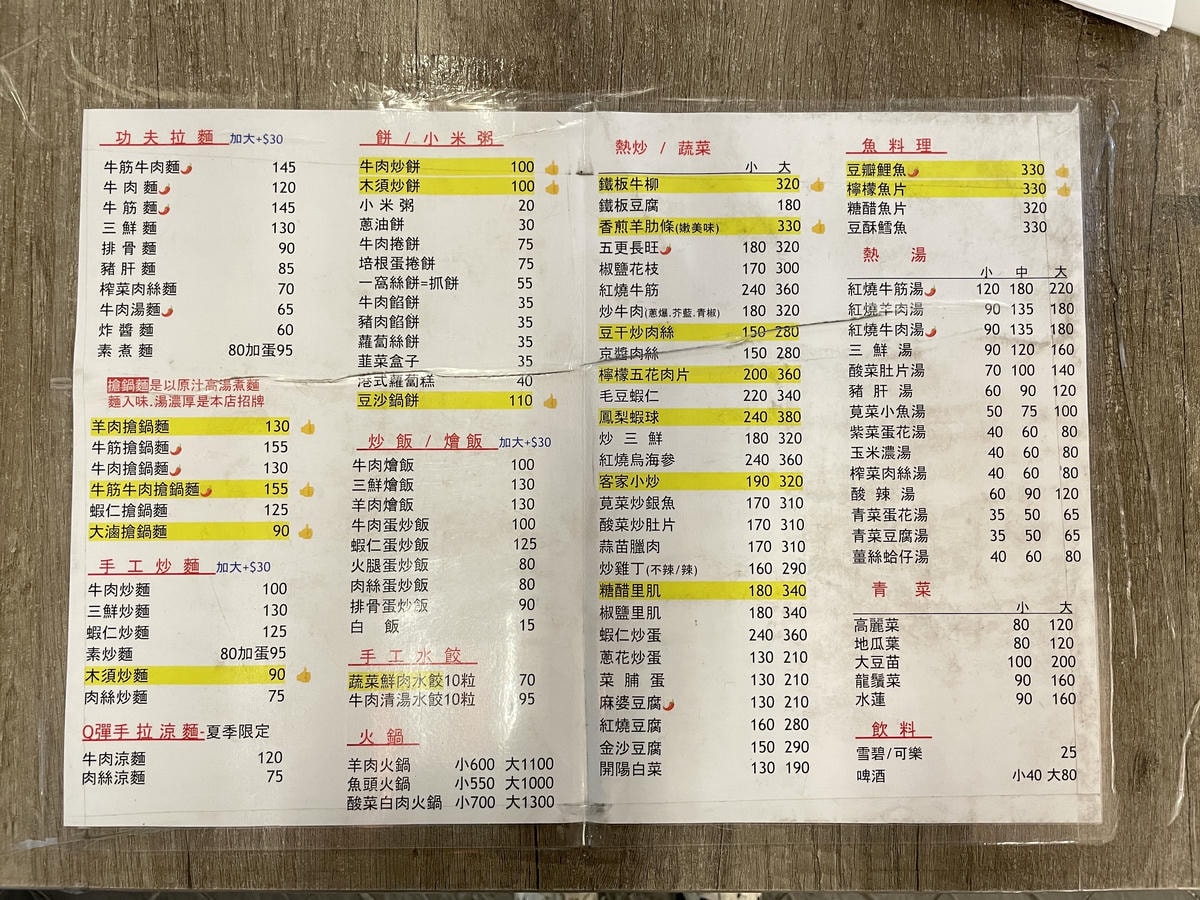 功夫拉麵 加大+$30
牛筋牛肉麵 145
牛肉麵 120
牛筋麵 145
三鮮麵 130
排骨麵 90
豬肝麵 85
榨菜肉絲麵 70
牛肉湯麵 65
炸醬麵 60
素煮麵 80加蛋95
搶鍋麵是以原汁高湯煮麵
麵入味.湯濃厚是本店招牌
羊肉搶鍋麵 130
牛筋搶鍋麵 155
牛肉搶鍋麵 130
牛筋牛肉搶鍋麵 155
蝦仁搶鍋麵 125
大滷搶鍋麵 90
手工炒麵 加大+$30
牛肉炒麵 100
三鮮炒麵 130
蝦仁炒麵 125
素炒麵 80加蛋95
木須炒麵 90
肉絲炒麵 75
Q彈手拉涼麵-夏季限定
牛肉涼麵 120
肉絲涼麵 75
餅/小米粥
牛肉炒餅 100
木須炒餅 100
小米粥 20
蔥油餅 30
牛肉捲餅 75
培根蛋捲餅 75
一窩絲餅=抓餅 55
牛肉餡餅 35
豬肉餡餅 35
蘿蔔絲餅 35
韮菜盒子 35
港式蘿蔔糕 40
豆沙鍋餅 110
炒飯/燴飯 加大+$30
牛肉燴飯 100
三鮮燴飯 130
羊肉燴飯 130
牛肉蛋炒飯 100
蝦仁蛋炒飯 125
火腿蛋炒飯 80
肉絲蛋炒飯 80
排骨蛋炒飯 90
白飯 15
手工水餃
蔬菜鮮肉水餃10粒 70
牛肉清湯水餃10粒 95
火鍋
羊肉火鍋 小600 大1100
魚頭火鍋 小550 大1000
酸菜白肉火鍋 小700 大1300
熱炒/蔬菜
小 大
鐵板牛柳 320
鐵板豆腐 180
香煎羊肋條(嫩美味) 330
五更長旺 180 320
椒鹽花枝 170 300
紅燒牛筋 240 360
炒牛肉(蔥爆.芥藍.青椒) 180 320
豆干炒肉絲 150 280
京醬肉絲 150 280
檸檬五花肉片 200 360
毛豆蝦仁 220 340
鳳梨蝦球 240 380
炒三鮮 180 320
紅燒烏海參 240 360
客家小炒 190 320
莧菜炒銀魚 170 310
酸菜炒肚片 170 310
蒜苗臘肉 170 310
炒雞丁(不辣/辣) 160 290
糖醋里肌 180 340
椒鹽里肌 180 340
蝦仁炒蛋 240 360
蔥花炒蛋 130 210
菜脯蛋 130 210
麻婆豆腐 130 210
紅燒豆腐 160 280
金沙豆腐 150 290
開陽白菜 130 190
魚料理
豆瓣鯉魚 330
檸檬魚片 330
糖醋魚片 320
豆酥鱈魚 330
熱湯
小 中 大
紅燒牛筋湯 120 180 220
紅燒羊肉湯 90 135 180
紅燒牛肉湯 90 135 180
三鮮湯 90 120 160
酸菜肚片湯 70 100 140
豬肝湯 60 90 120
莧菜小魚湯 50 75 100
紫菜蛋花湯 40 60 80
玉米濃湯 40 60 80
榨菜肉絲湯 40 60 80
酸辣湯 60 90 120
青菜蛋花湯 35 50 65
青菜豆腐湯 35 50 65
薑絲蛤仔湯 40 60 80
青菜
小 大
高麗菜 80 120
地瓜葉 80 120
大豆苗 100 200
龍鬚菜 90 160
水蓮 90 160
飲料
雪碧/可樂 25
啤酒 小40 大80